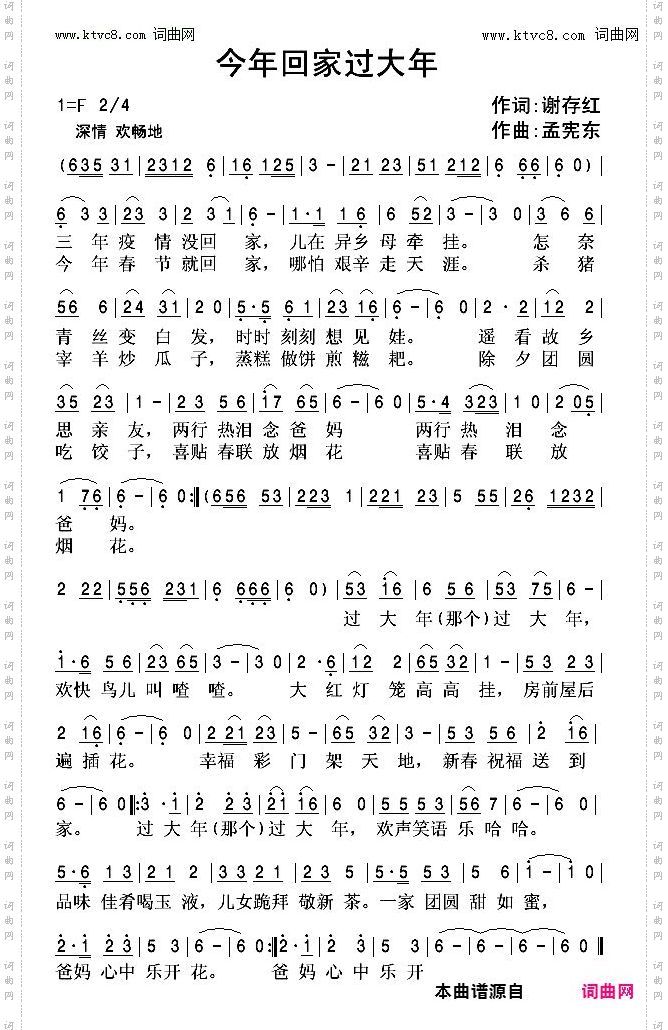 www.ktvc8.com 词曲网
www.ktvc8.com 词曲网
今年回家过大年
1=F 2/4
作词:谢存红
深情 欢畅地
作曲:孟宪东
(635 31|2312 6|16 125|3 -|21 23|51 212|6 66|6 0)|
6 3 3|23 3|2 3 1|6 -|1·1 16|6 52|3 -|3 0|3 6 6|
三 年 疫 情 没回 家, 儿在 异乡 母 牵 挂。 怎 奈
今 年 春 节 就回 家, 哪怕 艰辛 走 天 涯。 杀 猪
56 6|24 31|2 0|5·5 6 1|23 16|6 -|6 0|2 · 2|12 2|
青 丝 变 白 发, 时时 刻刻 想 见 娃。 遥 看 故 乡
宰 羊 炒 瓜 子, 蒸糕 做饼 煎 糍 粑。 除 夕 团 圆
35 23|1 -|2 3 5 6|17 65|6 -|6 0|5·4 323|1 0|2 05|
思 亲 友, 两行 热泪 念 爸 妈 两行 热 泪 念
吃 饺 子, 喜贴 春联 放 烟 花 喜贴 春 联 放
1 76|6 -|6 0:‖(656 53|223 1|221 23|5 55|26 1232|
爸 妈。
烟 花。
2 22|556 231|6 666|6 0)|53 16|6 56|53 75|6 -|
过 大 年(那个)过 大 年,
1·6 5 6|23 65|3 -|3 0|2 ·6|12 2|65 32|3 -|53 23|
欢快 鸟儿 叫 喳 喳。 大 红 灯 笼 高 高 挂, 房前屋后
2 16|6 -|6 0|2 21 23|5 · 6|5 3|53 56|2 16|
遍 插 花。 幸福 彩 门 架 天 地, 新春 祝福 送 到
6 -|6 0:3 ·1|2 2 3|21 16|6 0|5 5 5 3|56 7|6 0|
家。 过 大 年(那个)过 大 年, 欢声笑语 乐 哈 哈。
5·6 1 3|21 2|3212 35|5 2|5·5 5 3|2 35|1 -|1 0|
品味 佳肴喝玉 液, 儿女跪拜 敬新 茶。一家 团圆 甜 如 蜜,
2·1 2 3|53 5|6 -|6 0:‖2·1 2|3 5 3|5 6 -|6 -|6 0‖
爸妈 心中 乐开 花。 爸 妈 心 中 乐 开
本曲谱源自 词曲网